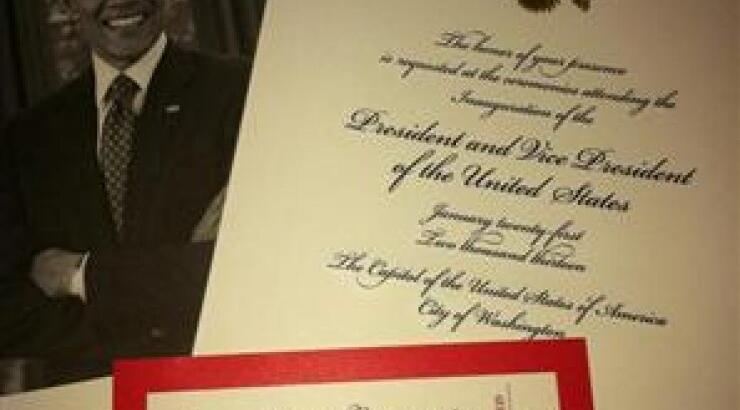 The honor of your presence
is requested at the ceremonies attending the
Inauguration of the
President and Vice President
of the United States
January twenty-first
Two thousand thirteen
The Capitol of the United States of America
City of Washington